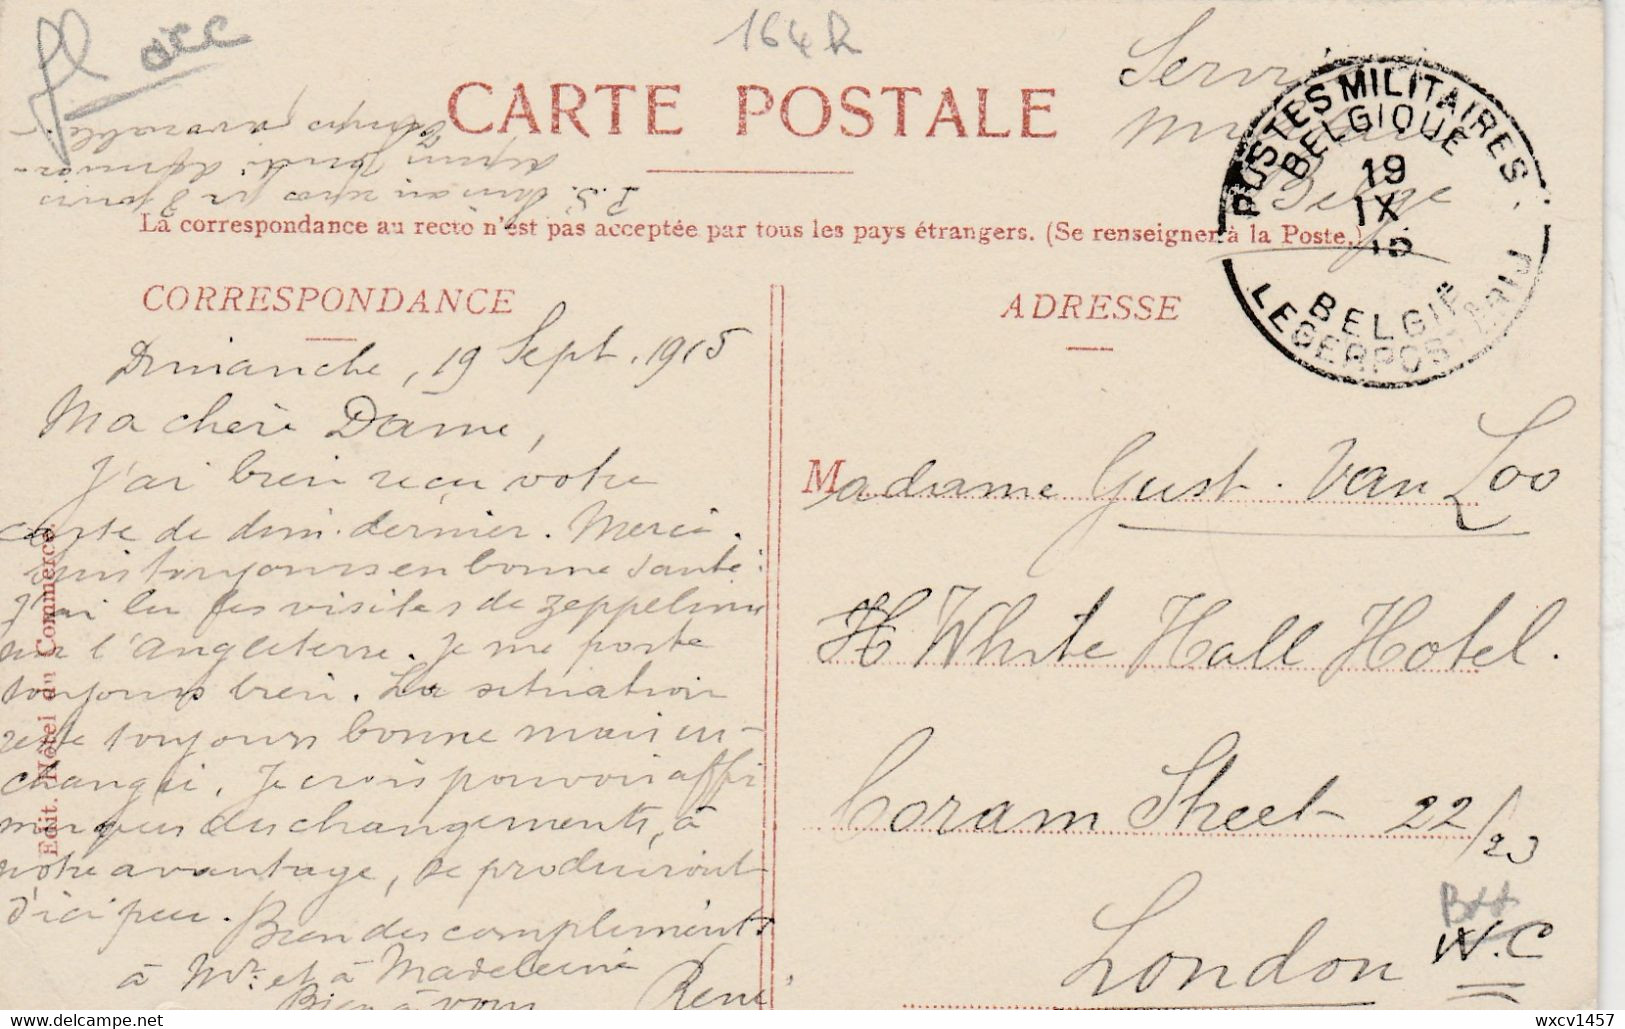 fl occ
164 h
CARTE POSTALE
Service
Militaire
Belge
POSTES MILITAIRES
BELGIQUE
19
IX
15
BELGIË
LEGERPOSTERIJ
La correspondance au recto n'est pas acceptée par tous les pays étrangers. (Se renseigner à la Poste.)
P.S. Suis au repos pr 3 jours
depuis jeudi dernier.
Temps favorable.
CORRESPONDANCE
Dimanche, 19 Sept. 1915
Ma chère Dame,
J'ai bien reçu votre
carte de dim. dernier. Merci.
Suis toujours en bonne santé.
J'ai lu les visites de zeppelins
sur l'Angleterre. Je me porte
toujours bien. La situation
reste toujours bonne mais in-
changée. Je crois pouvoir affir
mer que des changements, à
notre avantage, se produiront
d'ici peu.
Bien des compliments
à Mr. et à Madeleine
Bien à vous René
Edit. Hôtel du Commerce.
ADRESSE
Madame Gust. Van Loo
H White Hall Hotel.
Coram Street 22/23
London W.C
wxcv1457